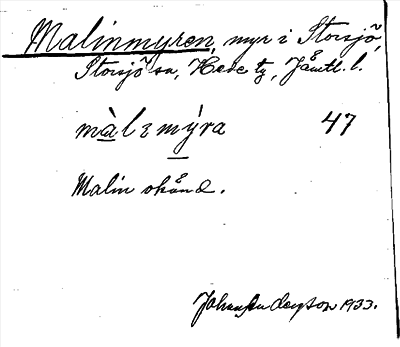 Malinmyren, myr i Storsjö,
Storsjö sn, Hede tg, Jämtl. l.
màlɛmýra 47
Malin okänd.
1933.